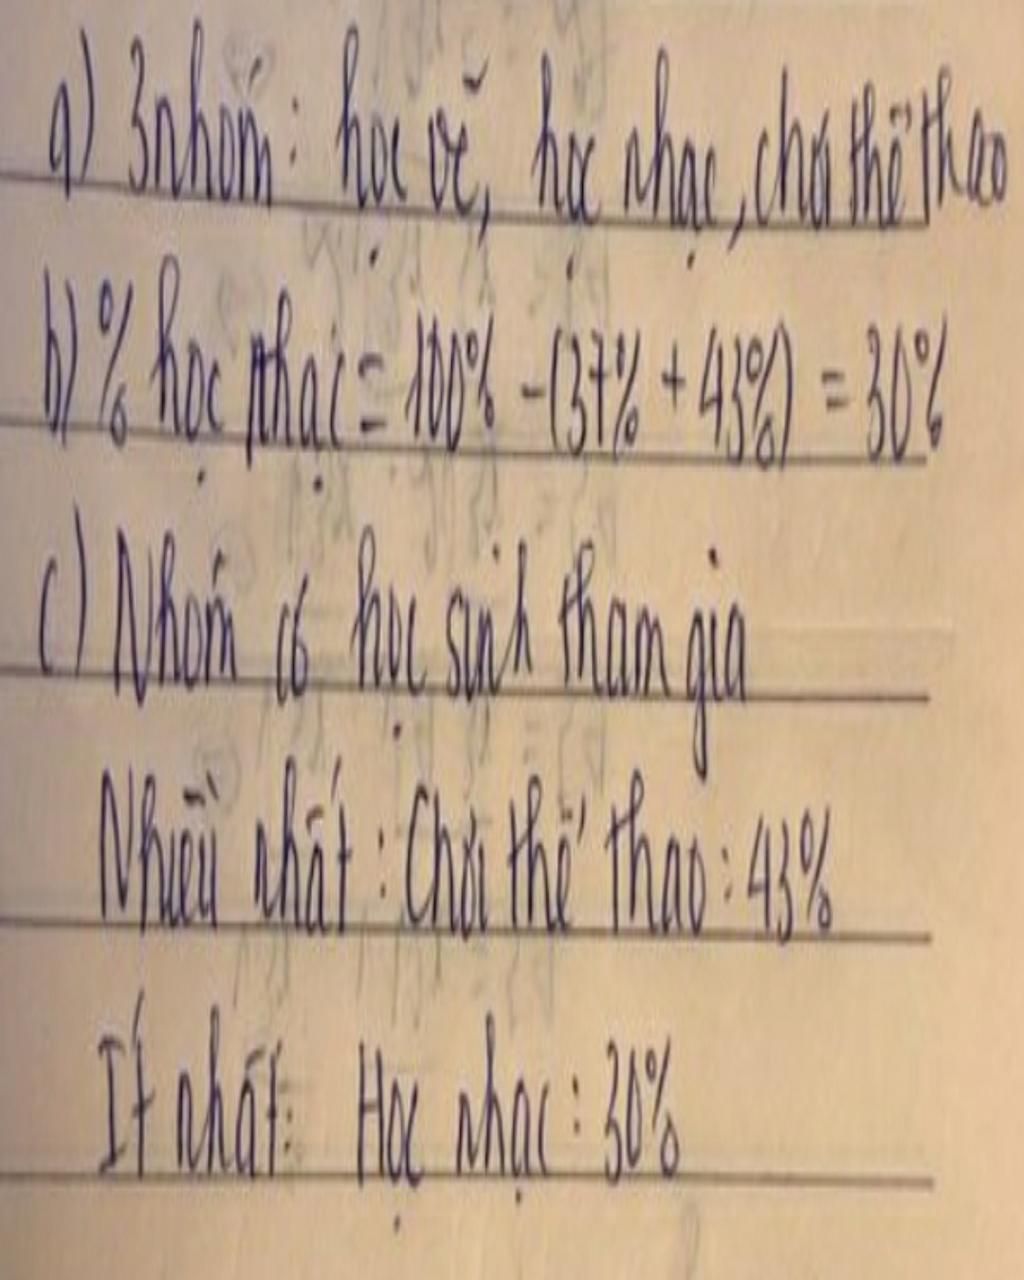 a) 3 nhóm: học vẽ, học nhạc, chơi thể thao
b) % học nhạc = 100% - (37% + 43%) = 30%
c) Nhóm có học sinh tham gia
Nhiều nhất: Chơi thể thao: 43%
Ít nhất: Học nhạc: 30%